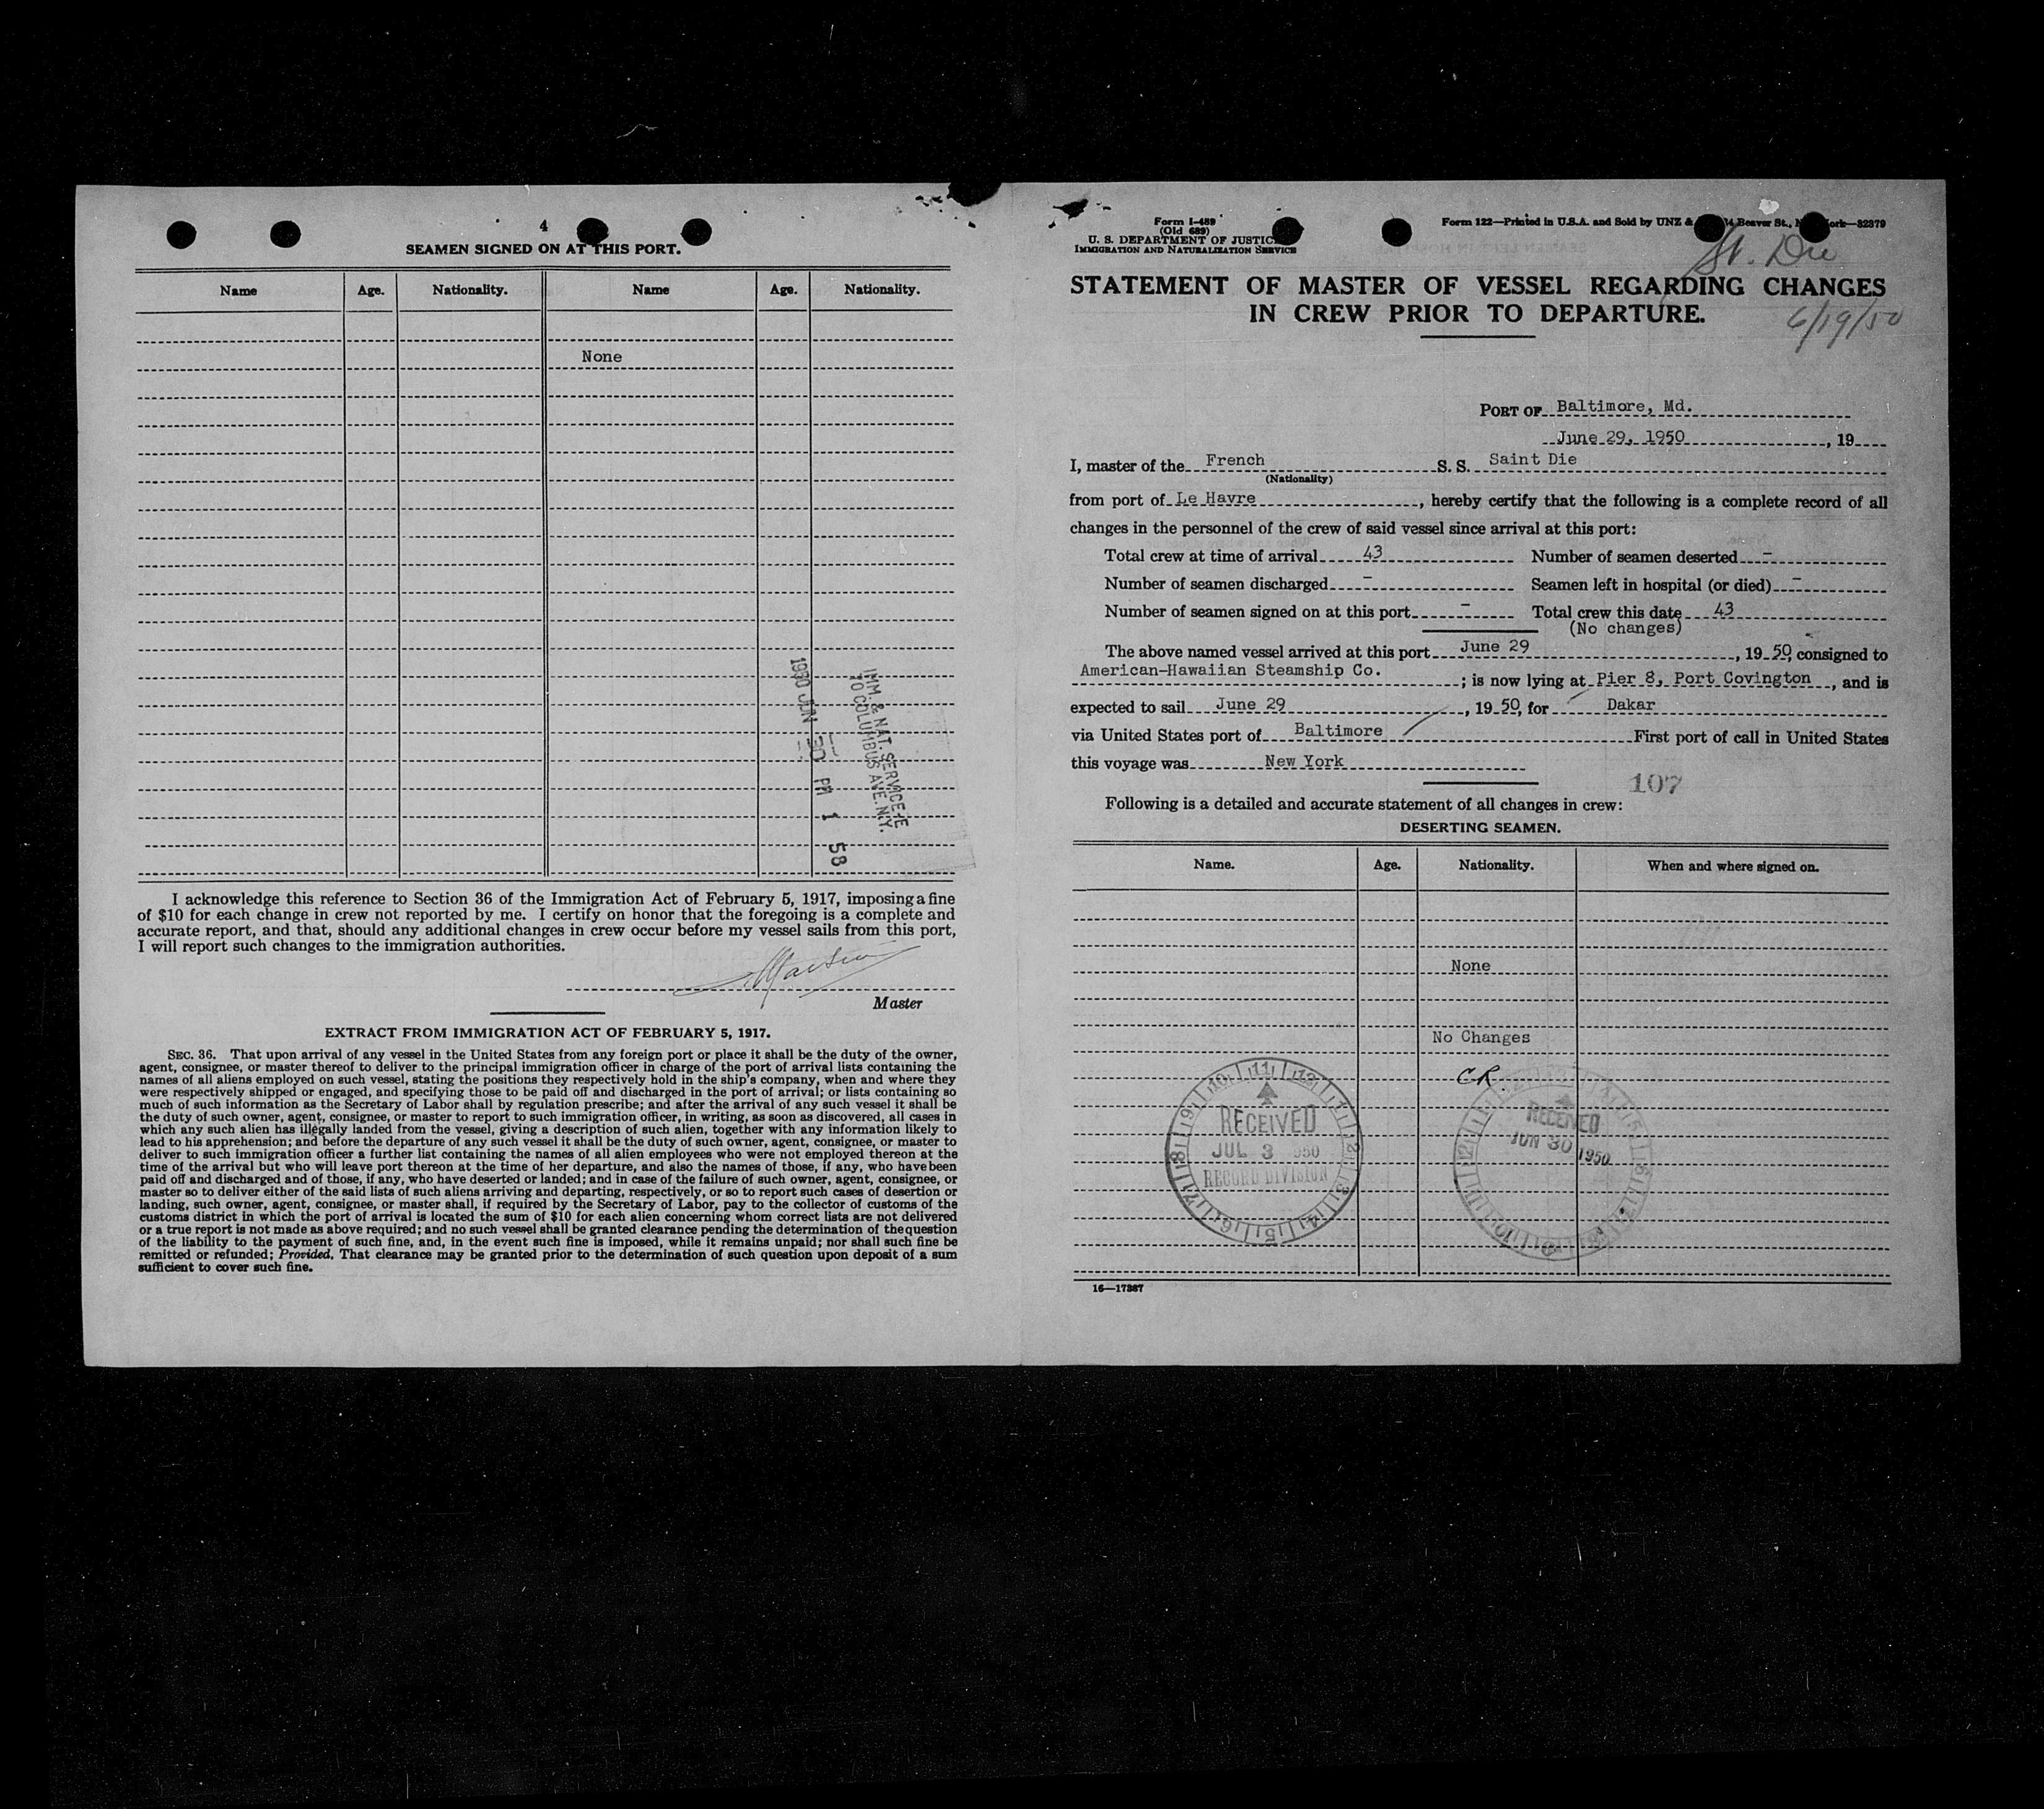 4
SEAMEN SIGNED ON AT THIS PORT.
Name Age. Nationality. Name Age. Nationality.
None
IMM & NAT. SERVICE-E
70 COLUMBUS AVE. N.Y.
1950 JUN 30 PM 1 58
I acknowledge this reference to Section 36 of the Immigration Act of February 5, 1917, imposing a fine
of $10 for each change in crew not reported by me. I certify on honor that the foregoing is a complete and
accurate report, and that, should any additional changes in crew occur before my vessel sails from this port,
I will report such changes to the immigration authorities.
Master
EXTRACT FROM IMMIGRATION ACT OF FEBRUARY 5, 1917.
SEC. 36. That upon arrival of any vessel in the United States from any foreign port or place it shall be the duty of the owner,
agent, consignee, or master thereof to deliver to the principal immigration officer in charge of the port of arrival lists containing the
names of all aliens employed on such vessel, stating the positions they respectively hold in the ship's company, when and where they
were respectively shipped or engaged, and specifying those to be paid off and discharged in the port of arrival; or lists containing so
much of such information as the Secretary of Labor shall by regulation prescribe; and after the arrival of any such vessel it shall be
the duty of such owner, agent, consignee, or master to report to such immigration officer, in writing, as soon as discovered, all cases in
which any such alien has illegally landed from the vessel, giving a description of such alien, together with any information likely to
lead to his apprehension; and before the departure of any such vessel it shall be the duty of such owner, agent, consignee, or master to
deliver to such immigration officer a further list containing the names of all alien employees who were not employed thereon at the
time of the arrival but who will leave port thereon at the time of her departure, and also the names of those, if any, who have been
paid off and discharged and of those, if any, who have deserted or landed; and in case of the failure of such owner, agent, consignee, or
master so to deliver either of the said lists of such aliens arriving and departing, respectively, or so to report such cases of desertion or
landing, such owner, agent, consignee, or master shall, if required by the Secretary of Labor, pay to the collector of customs of the
customs district in which the port of arrival is located the sum of $10 for each alien concerning whom correct lists are not delivered
or a true report is not made as above required; and no such vessel shall be granted clearance pending the determination of the question
of the liability to the payment of such fine, and, in the event such fine is imposed, while it remains unpaid; nor shall such fine be
remitted or refunded; Provided, That clearance may be granted prior to the determination of such question upon deposit of a sum
sufficient to cover such fine.
Form I-489
(Old 689)
U. S. DEPARTMENT OF JUSTICE
IMMIGRATION AND NATURALIZATION SERVICE
Form 122—Printed in U.S.A. and Sold by UNZ & Beaver St., 82379
St. Die
STATEMENT OF MASTER OF VESSEL REGARDING CHANGES
IN CREW PRIOR TO DEPARTURE.
6/19/50
PORT OF Baltimore, Md.
June 29, 1950, 19
I, master of the French S. S. Saint Die
(Nationality)
from port of Le Havre, hereby certify that the following is a complete record of all
changes in the personnel of the crew of said vessel since arrival at this port:
Total crew at time of arrival 43 Number of seamen deserted -
Number of seamen discharged - Seamen left in hospital (or died) -
Number of seamen signed on at this port - Total crew this date 43
(No changes)
The above named vessel arrived at this port June 29, 19 50, consigned to
American-Hawaiian Steamship Co.; is now lying at Pier 8, Port Covington, and is
expected to sail June 29, 19 50, for Dakar
via United States port of Baltimore First port of call in United States
this voyage was New York
107
Following is a detailed and accurate statement of all changes in crew:
DESERTING SEAMEN.
Name. Age. Nationality. When and where signed on.
None
No Changes
CR.
RECEIVED
JUL 3 950
RECORD DIVISION
RECEIVED
JUN 30 1950
16—17387